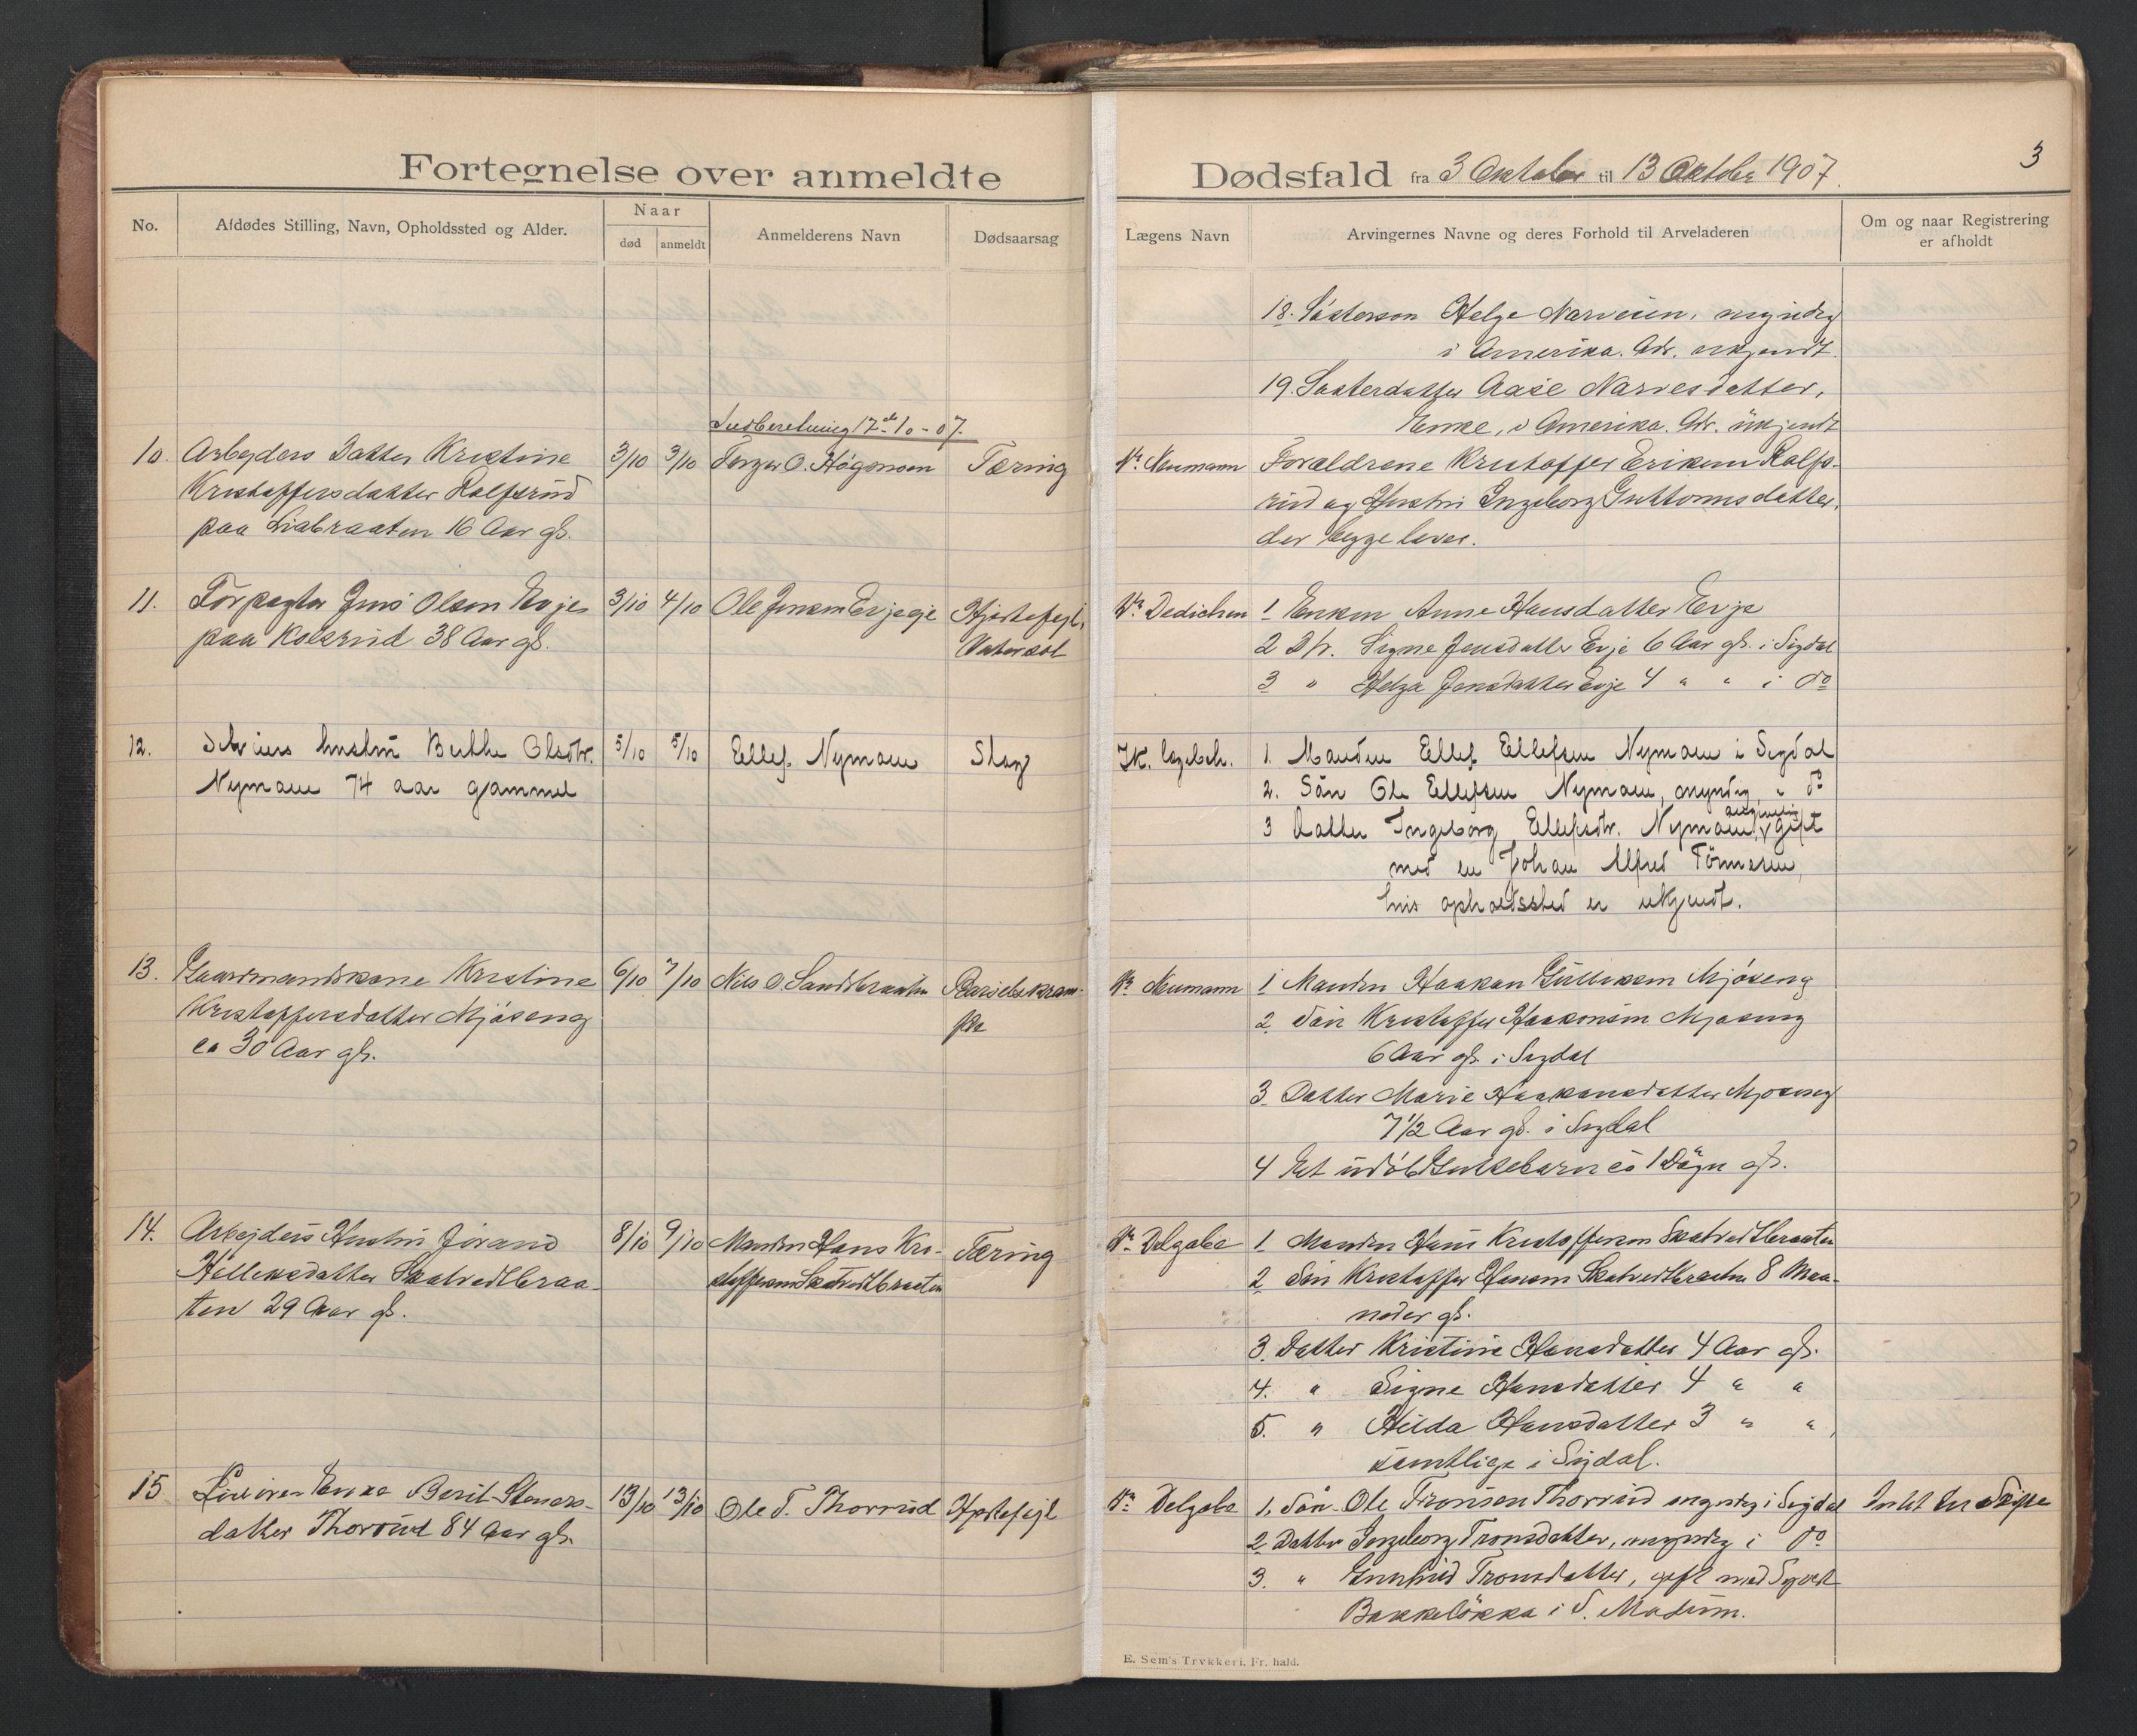 Fortegnelse over anmeldte
Dødsfald fra 3 Oktober til 13 Oktober 1907.
3
No.
Afdødes Stilling, Navn, Opholdssted og Alder.
Naar
død
anmeldt
Anmelderens Navn
Dødsaarsag
Lægens Navn
Arvingernes Navne og deres Forhold til Arveladeren
Om og naar Registrering
er afholdt
18. Søsterson Helge Narvesen, myndig
i Amerika. Adr. ukjendt.
19. Søsterdatter Aase Narvesdatter,
Enke, i Amerika. Adr. ukjendt
Indberetning 17de 10 - 07.
10. Arbejders Datter Kristine
Kristoffersdatter Rolfsrud
paa Liabraaten 16 Aar gl.
3/10 3/10 Torger O. Høgensen Tæring
Dr. Neumann
Forældrene Kristoffer Eriksen Rolfs-
rud og Hustru Ingeborg Guttormsdatter,
der begge lever.
11. Forpagter Jens Olsen Evje
paa Kolsrud 38 Aar gl.
3/10 4/10 Ole Jensen Evje
Hjertefejl,
Vatersot
Dr. Dedichen
1 Enken Anne Hansdatter Evje
2 Dtr. Signe Jensdatter Evje 6 Aar gl. i Sigdal
3 " Helga Jensdatter Evje 4 " " i do
12. hustru Berthe Olsdtr.
Nymoen 74 aar gammel
5/10 5/10 Ellef Nymoen Slag
1. Manden Ellef Ellefsen Nymoen i Sigdal
2. Søn Ole Ellefsen Nymoen, myndig, i do
3 Datter Ingeborg Ellefsdtr. Nymoen, gift
med en Johan Alfred Tønnesen,
hvis opholdssted er ukjendt.
13. Gaardmandskone Kristine
Kristoffersdatter Mjøseng
ca 30 Aar gl.
6/10 7/10 Nils O. Sandbraaten
Barselskram-
pe
Dr. Neumann
1 Manden Haakon Gulliksen Mjøseng
2. Søn Kristoffer Haakonsen Mjøseng
6 Aar gl. i Sigdal
3. Datter Marie Haakonsdatter Mjøseng
7 1/2 Aar gl. i Sigdal
4 Et udøbt Guttebarn ca 1 Døgn gl.
14. Arbejders Hustru Jørand
Helleksdatter Skatvedtbraa-
ten 29 Aar gl.
8/10 9/10 Manden Hans Kri-
stoffersen Skatvedtbraaten
Tæring
Dr. Delgobe
1 Manden Hans Kristoffersen Skatvedtbraaten
2 Søn Kristoffer Hansen Skatvedtbraaten 8 Maa-
neder gl.
3. Datter Kristine Hansdatter 4 Aar gl.
4. " Signe Hansdatter 4 " "
5. " Hilda Hansdatter 3 " "
samtlige i Sigdal.
15 Enke Beril Steners-
datter Thorrud 84 Aar gl.
13/10 13/10 Ole T. Thorrud Hjertefejl
Dr. Delgobe
1. Søn Ole Tronsen Thorrud myndig i Sigdal
2 Datter Ingeborg Tronsdatter, myndig i do
3. " Gunhild Tronsdatter, gift med Syvert
Bakkeløkka i S. Modum.
Intet Skifte
E. Sem's Trykkeri, Fr. hald.